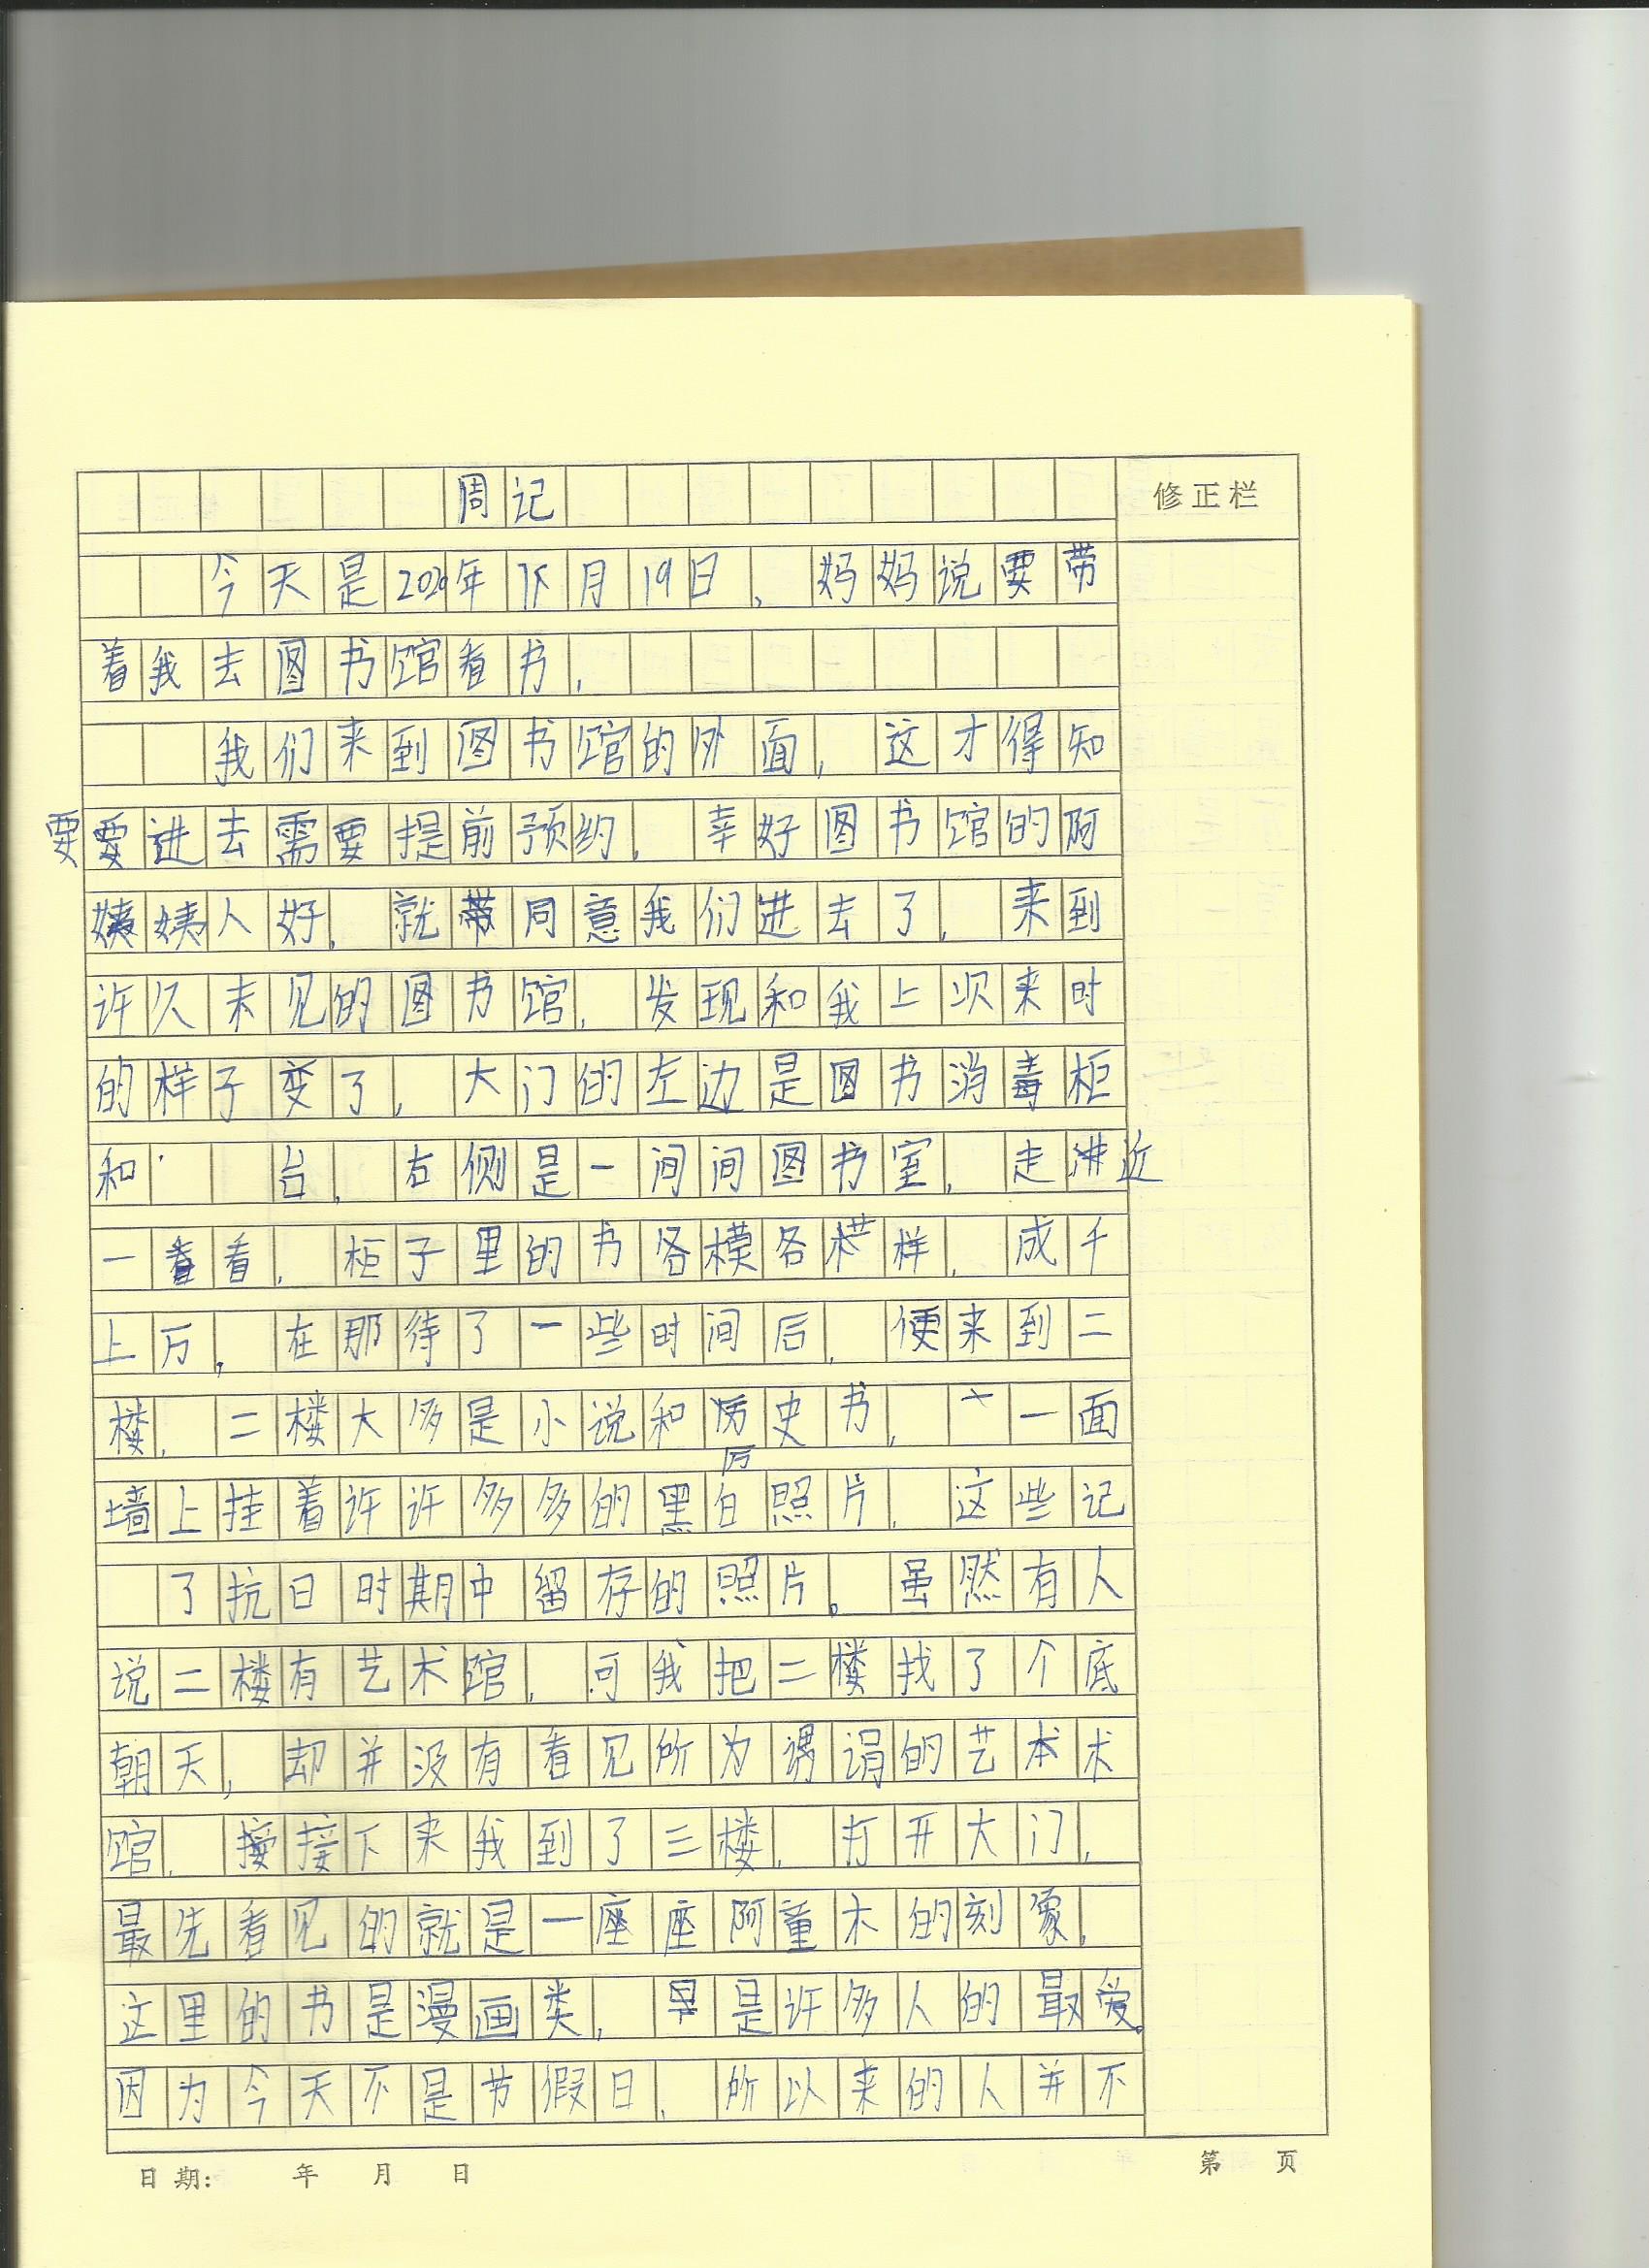 周记
修正栏
今天是2020年月19日，妈妈说要带
着我去图书馆看书，
我们来到图书馆的外面，这才得知
要进去需要提前预约，幸好图书馆的阿
姨人好，就同意我们进去了，来到
许久未见的图书馆，发现和我上次来时
的样子变了，大门的左边是图书消毒柜
和 台，右侧是一间间图书室，走近
一看，柜子里的书各模各样，成千
上万，在那待了一些时间后，便来到二
楼，二楼大多是小说和历史书，一面
墙上挂着许许多多的黑白照片，这些记
了抗日时期中留存的照片。虽然有人
说二楼有艺术馆，可我把二楼找了个底
朝天，却并没有看见所为谓的艺术
馆，接下来我到了三楼，打开大门，
最先看见的就是一座座阿童木的刻像，
这里的书是漫画类，是许多人的最爱。
因为今天不是节假日，所以来的人并不
日期: 年 月 日
第 页